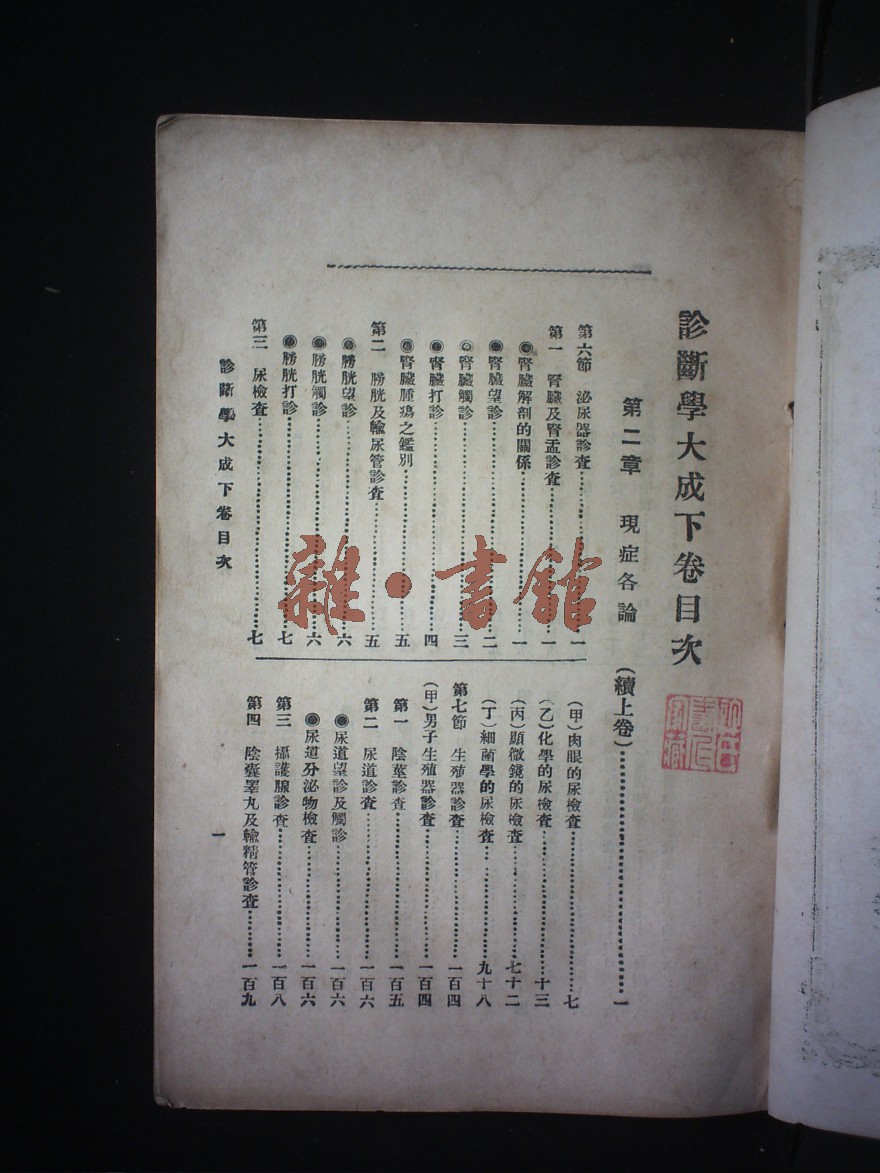 診斷學大成下卷目次
第二章　現症各論　(續上卷)………一
第六節　泌尿器診查………一
第一　腎臟及腎盂診查………一
◉腎臟解剖的關係………一
◉腎臟望診………二
◉腎臟觸診………三
◉腎臟打診………四
◉腎臟腫瘍之鑑別………五
第二　膀胱及輸尿管診查………五
◉膀胱望診………六
◉膀胱觸診………六
◉膀胱打診………七
第三　尿檢查………七
(甲)肉眼的尿檢查………七
(乙)化學的尿檢查………十三
(丙)顯微鏡的尿檢查………七十二
(丁)細菌學的尿檢查………九十八
第七節　生殖器診查………一百四
(甲)男子生殖器診查………一百四
第一　陰莖診查………一百五
第二　尿道診查………一百六
◉尿道望診及觸診………一百六
◉尿道分泌物檢查………一百六
第三　攝護腺診查………一百八
第四　陰囊睪丸及輸精管診查………一百九
診斷學大成下卷目次
一
雜·書館